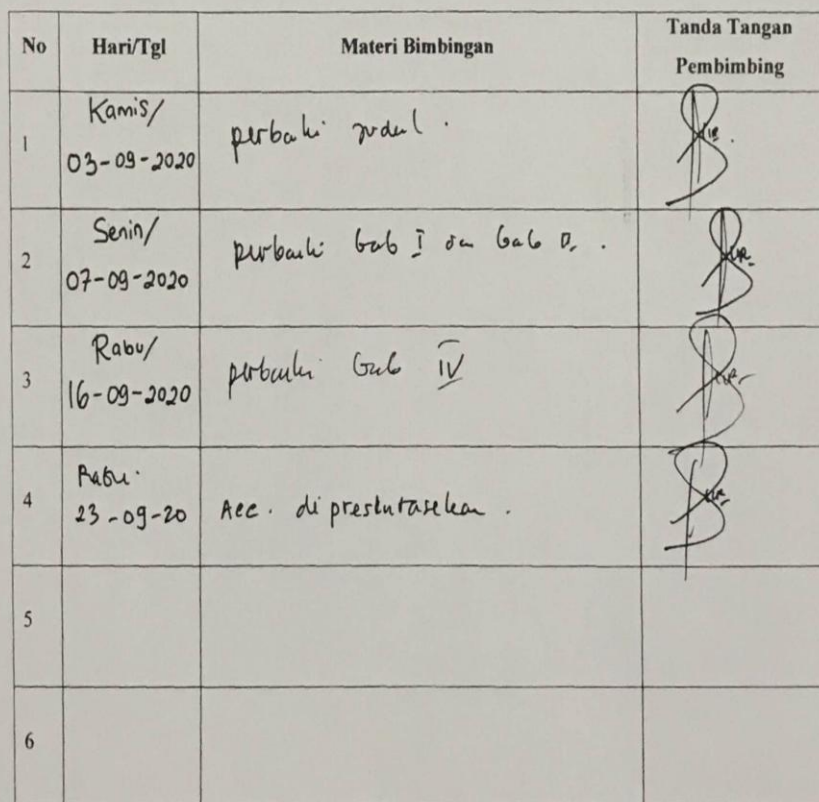 No Hari/Tgl Materi Bimbingan Tanda Tangan Pembimbing
1 Kamis/ 03-09-2020 perbaiki judul.
2 Senin/ 07-09-2020 perbaiki bab I dan bab II.
3 Rabu/ 16-09-2020 perbaiki bab IV
4 Rabu. 23-09-20 Acc. dipresentasekan.
5
6